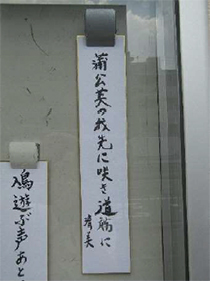 蒲公英の救先に咲き道端に
彦美
鳩遊ぶ声あと